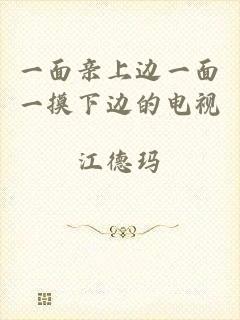 一面亲上边一面
一摸下边的电视
江德玛